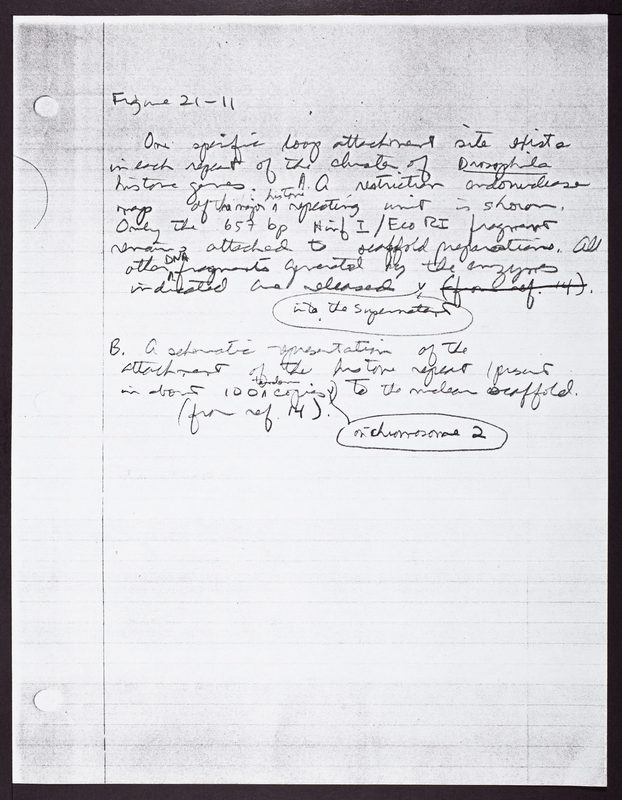 Figure 21-11
One specific loop attachment site exists
in each repeat of the cluster of Drosophila
histone genes. A. A restriction endonuclease
map of the major histone repeating unit is shown.
Only the 657 bp Hinf I/Eco RI fragment
remains attached to scaffold preparations. All
other DNA fragments generated by the enzymes
indicated are released (from ref. 14).
into the supernatant
B. A schematic representation of the
attachment of the histone repeat (present
in about 100 tandem copies) to the nuclear scaffold.
(from ref 14).
on chromosome 2